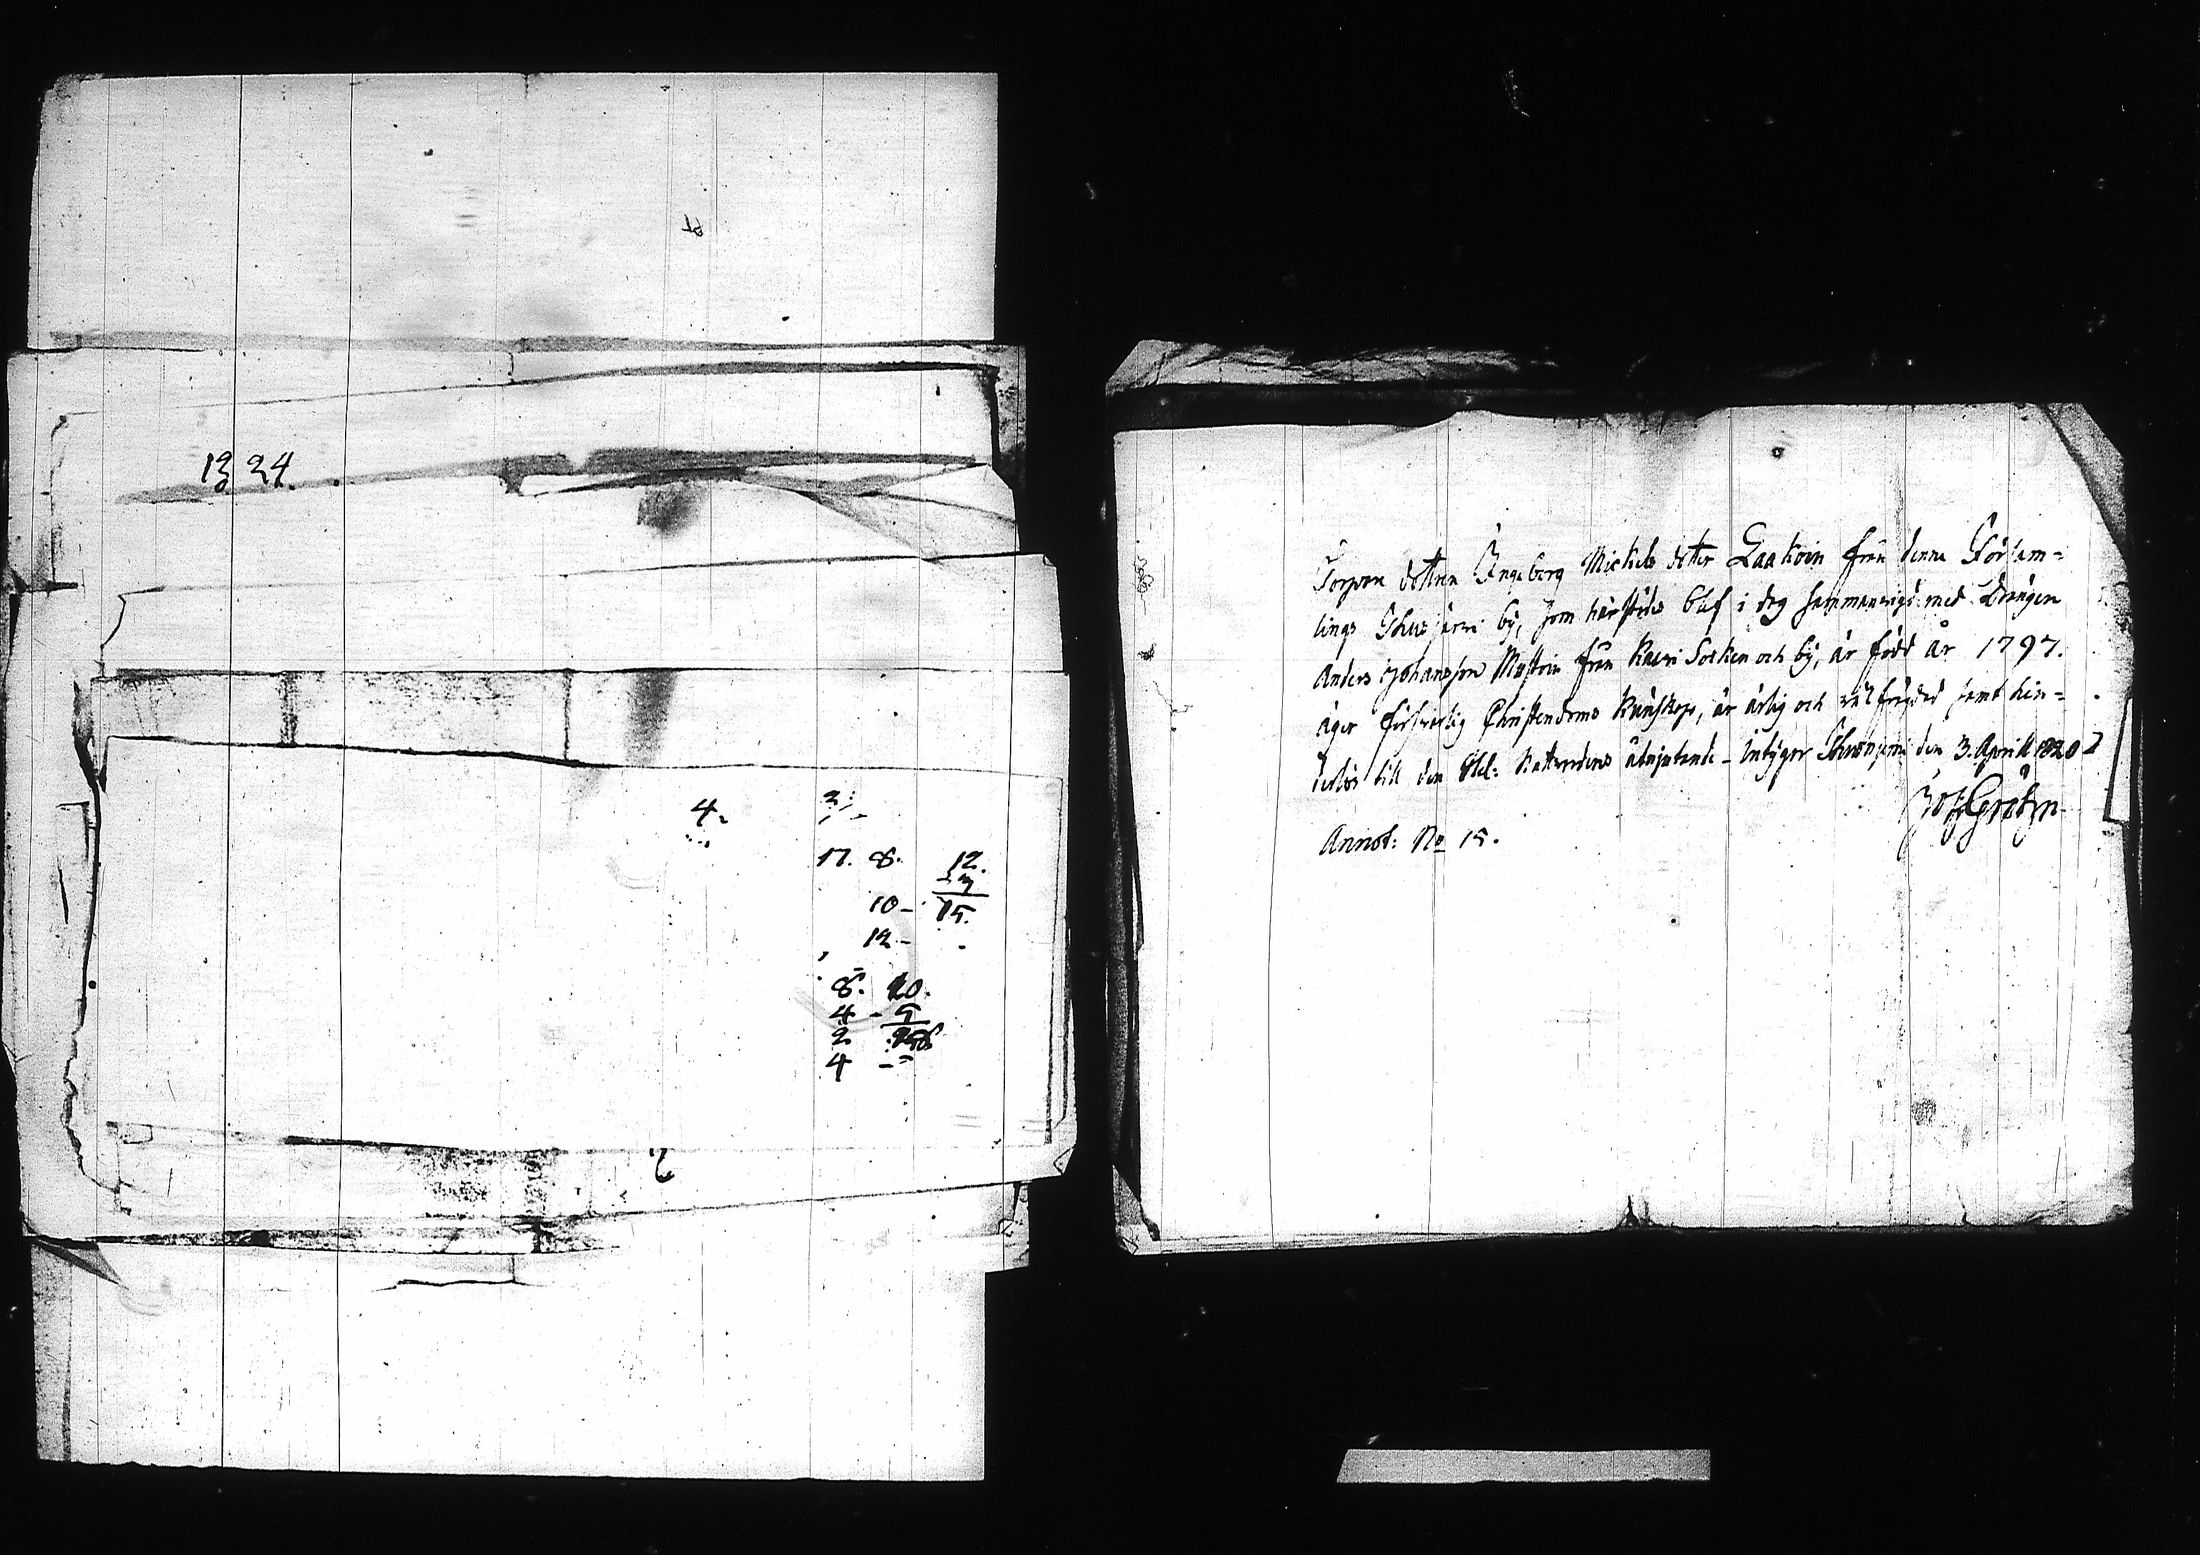 13 24.
4.
3.
17. 8. 12.
3
10 - 15.
12 -
8. 20.
4 - 5
2
4 -
Torpare dottren Ingeborg Mickels dotter Laakoin från denna Församlings
lings Ihus järvi by, som härstädes blef i dag sammanvigd med Drängen
Anders Johansson Mustoin från Kaavi Socken och by, är född år 1797.
äger försvarlig Christendoms Kunskap, är ärlig och välfrägdad samt hin=
derlös till den H: Nattvardens åtnjutande - Intygar den 3. April 1820
Annot: No 15.